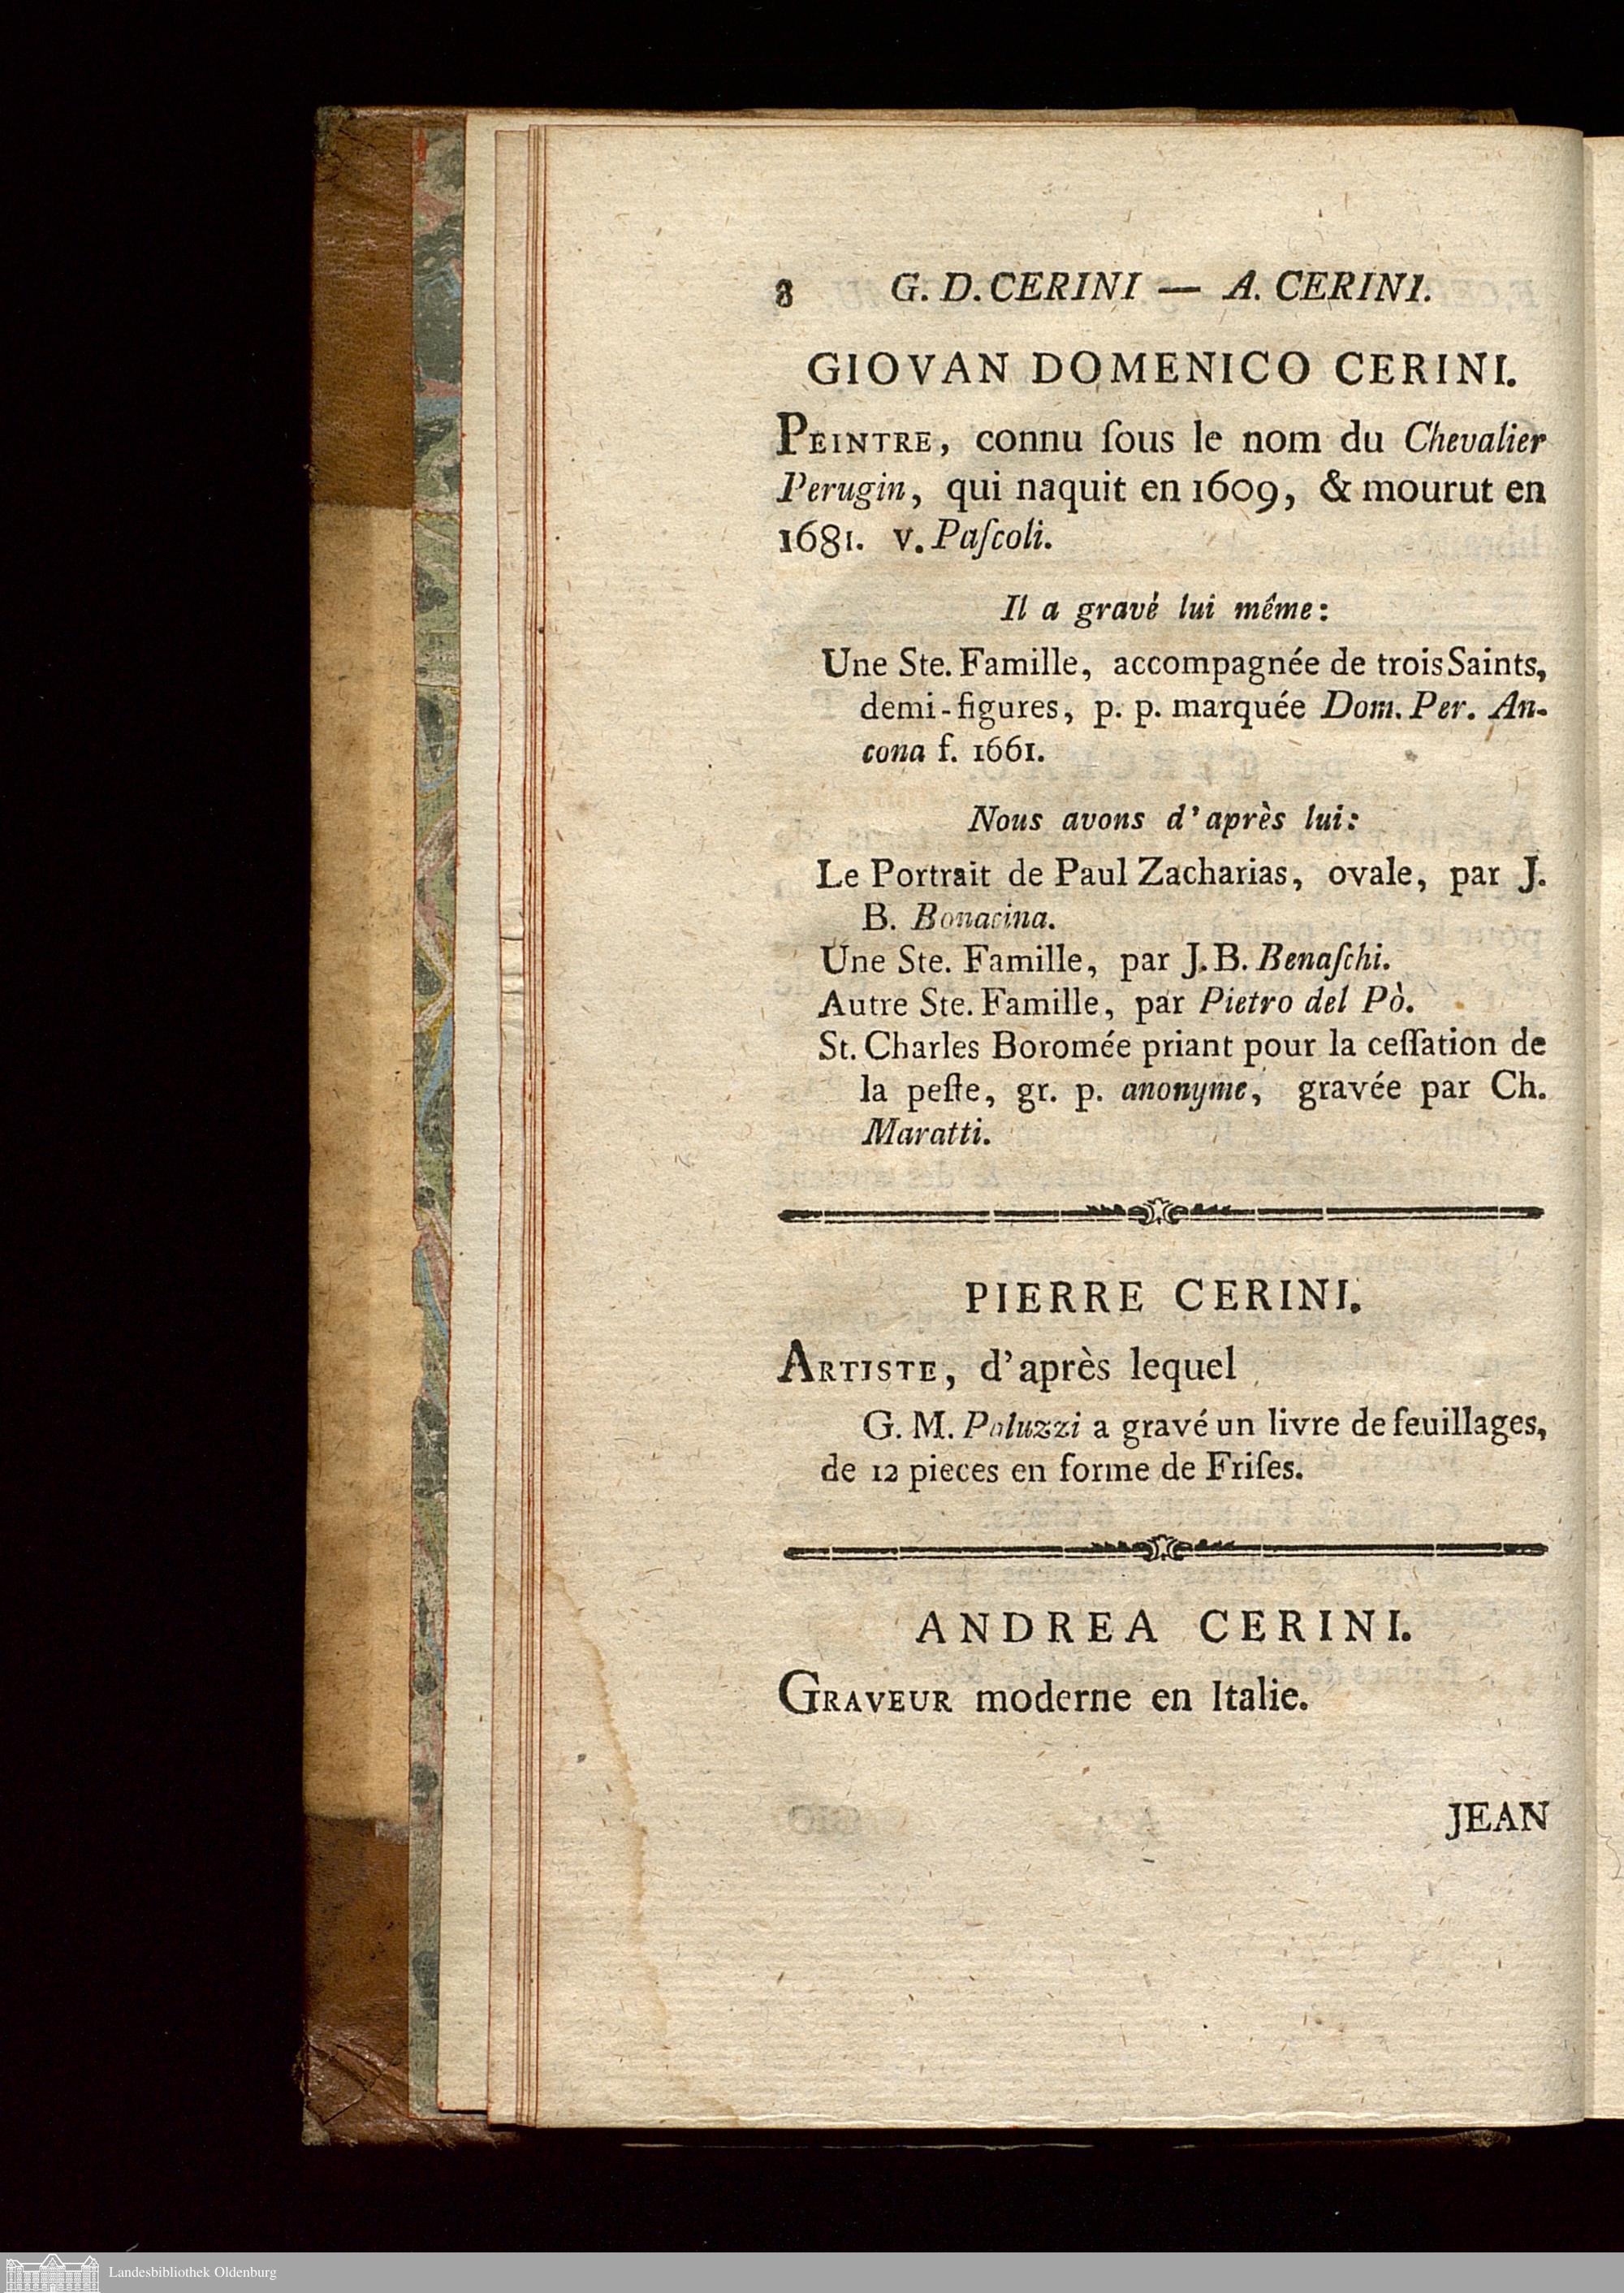 8 G. D. CERINI — A. CERINI.
GIOVAN DOMENICO CERINI.
PEINTRE, connu ſous le nom du Chevalier
Perugin, qui naquit en 1609, & mourut en
1681. v. Paſcoli.
Il a gravé lui même:
Une Ste. Famille, accompagnée de trois Saints,
demi-figures, p. p. marquée Dom. Per. An-
cona f. 1661.
Nous avons d'après lui:
Le Portrait de Paul Zacharias, ovale, par J.
B. Bonacina.
Une Ste. Famille, par J. B. Benaſchi.
Autre Ste. Famille, par Pietro del Pò.
St. Charles Boromée priant pour la ceſſation de
la peſte, gr. p. anonyme, gravée par Ch.
Maratti.
PIERRE CERINI.
ARTISTE, d'après lequel
G. M. Paluzzi a gravé un livre de feuillages,
de 12 pieces en forme de Friſes.
ANDREA CERINI.
GRAVEUR moderne en Italie.
JEAN
Landesbibliothek Oldenburg